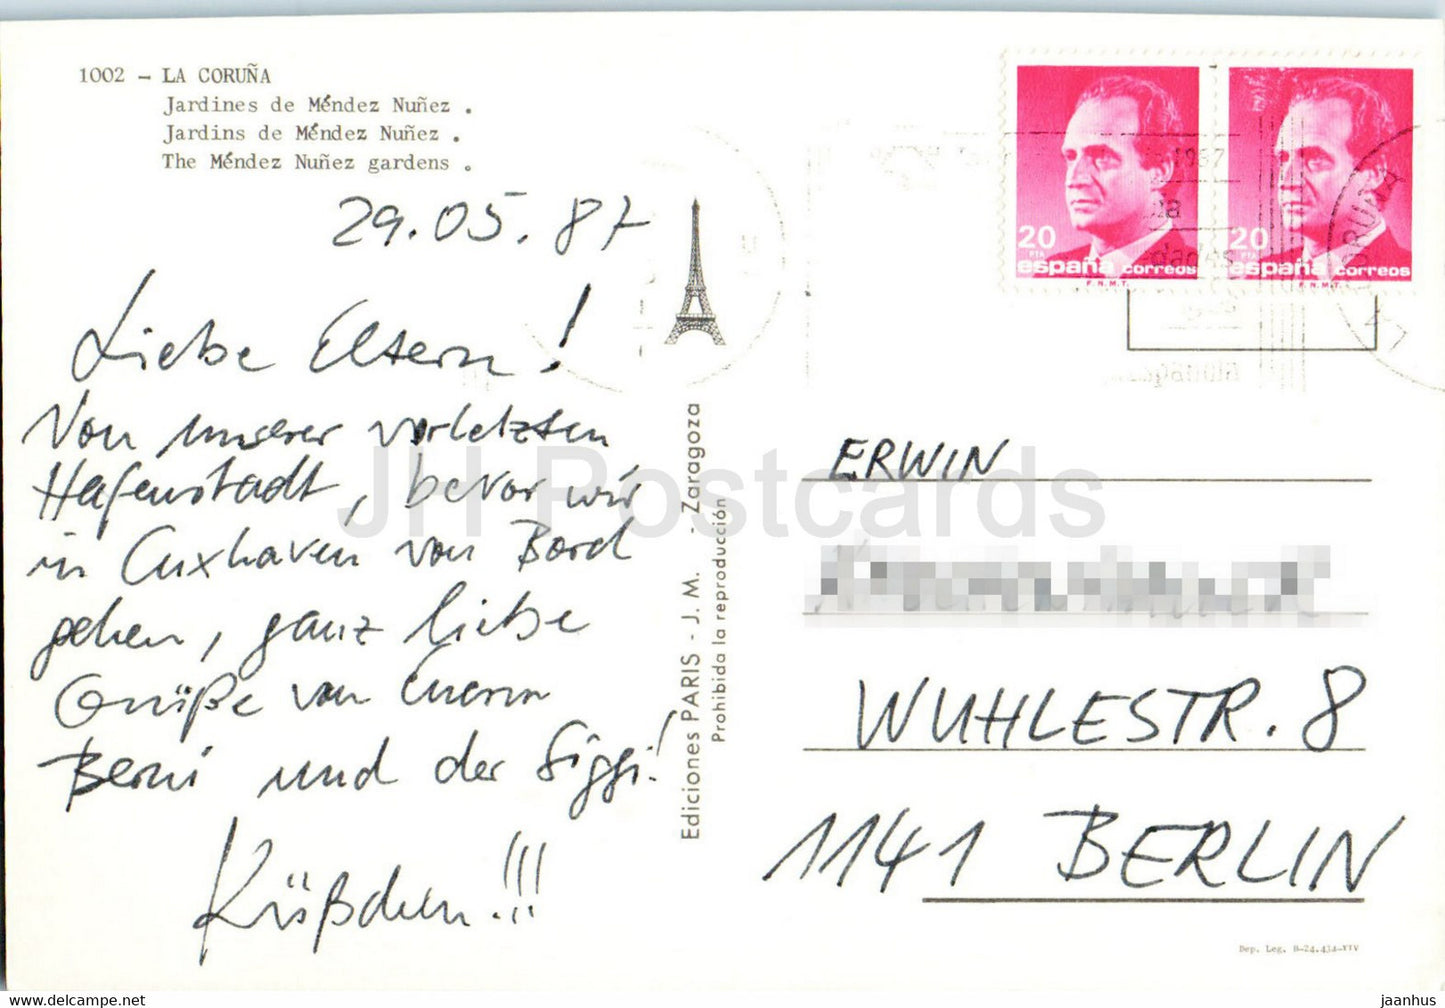 1002 - LA CORUÑA
Jardines de Méndez Nuñez .
Jardins de Méndez Nuñez .
The Méndez Nuñez gardens .
29.05.87
Liebe Eltern!
Von unserer vorletzten
Hafenstadt, bevor wir
in Cuxhaven von Bord
gehen, ganz liebe
Grüße von Euerm
Berni und der Siggi!
Küßchen!!!
Ediciones PARIS - J. M. - Zaragoza
Prohibida la reproducción
20
PTA
españa correos
F.N.M.T.
20
PTA
españa correos
F.N.M.T.
1987
ERWIN
WUHLESTR. 8
1141 BERLIN
Dep. Leg. B-24.434-XIV
JH Postcards
jaanhus — https://jhpostcards.com